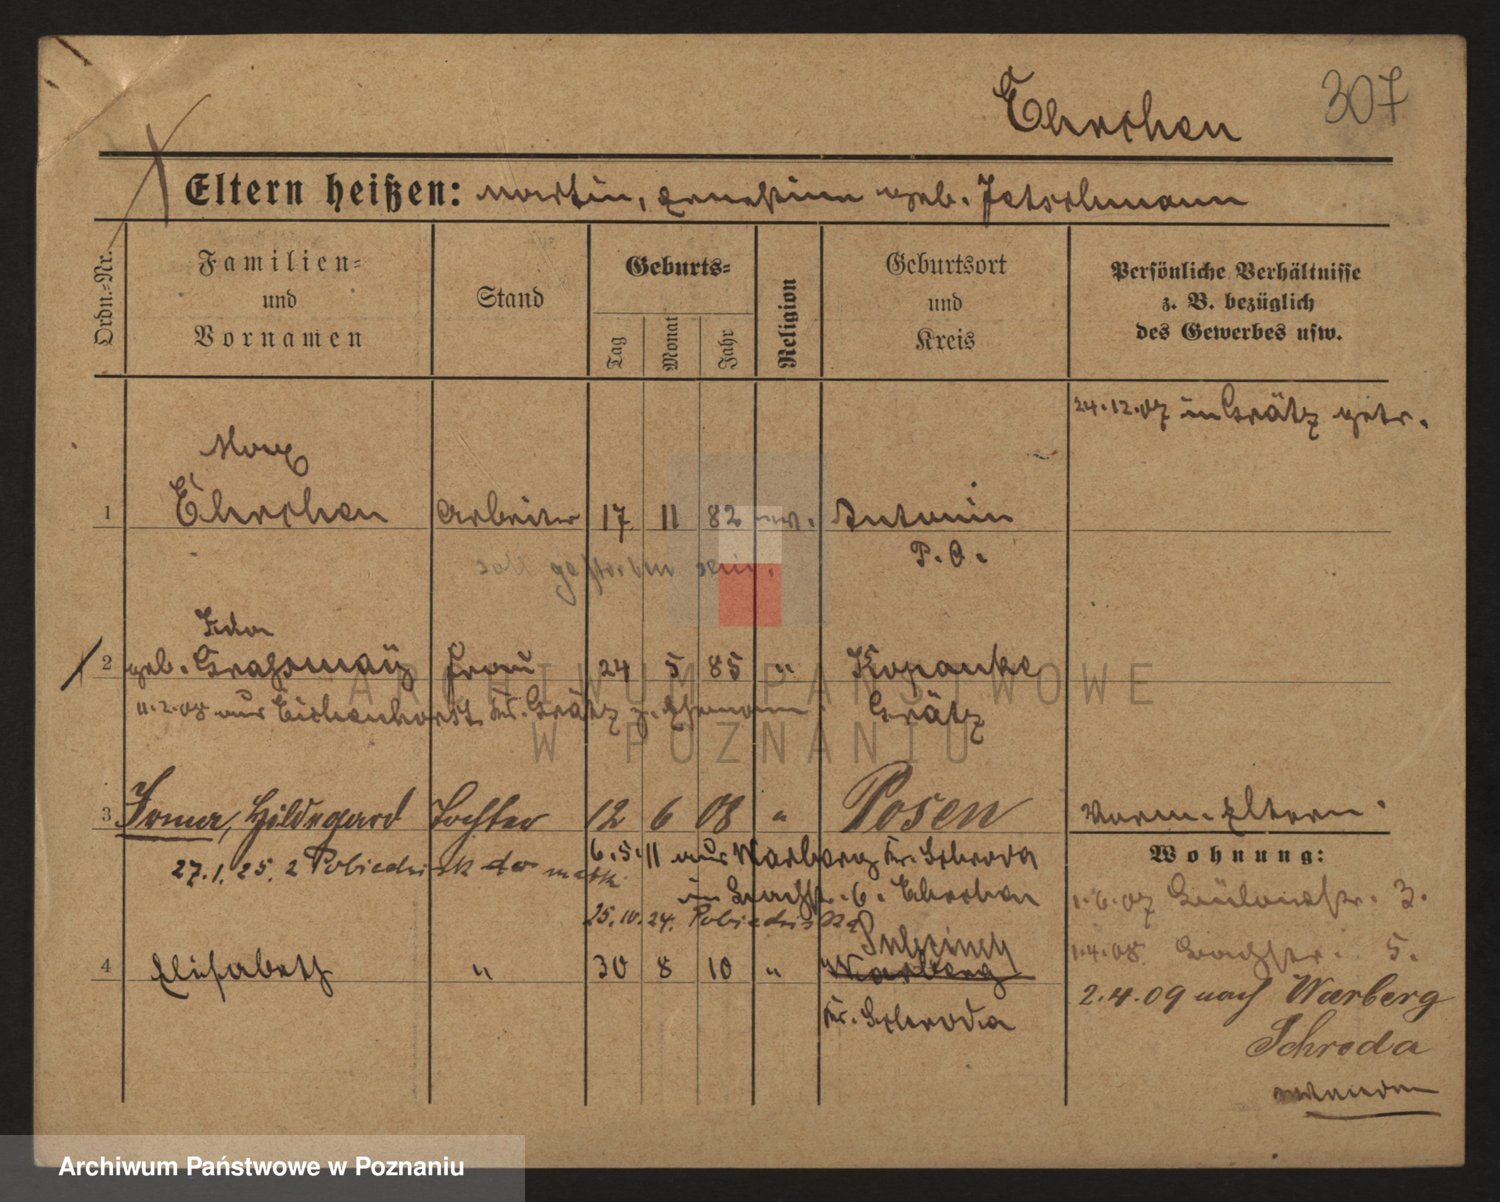 Ehrchen 307
Eltern heißen: Martin, Ernestine geb. Jetschmann
Ordn.-Nr.
Familien-
und
Vornamen
Stand
Geburts-
Tag
Monat
Jahr
Religion
Geburtsort
und
Kreis
Persönliche Verhältnisse
z. B. bezüglich
des Gewerbes usw.
24.12.07 in Grätz getr.
Max
1 Ehrchen Arbeiter 17 11 82 ev. Antonin
P. O.
soll gestorben sein.
Ida
2 geb. Frau 24 5 85 " Kopanke
11.2.08 aus Eichenhorst Kr. Grätz z. Ehemann Grätz
3 Irma, Hildegard Tochter 12 6 08 " Posen Vorm. Eltern
6.5.11 aus Warberg Kr. Schroda
27.1.25. 2 Pobiedziska
in 6. Ehrchen
25.10.24. Pobiedziska
Wohnung:
1.6.07 3.
1.4.08. 5.
4 Elisabeth " 30 8 10 " Warberg
Kr. Schroda
2.4.09 nach Warberg
Schroda
ARCHIWUM PAŃSTWOWE
W POZNANIU
Archiwum Państwowe w Poznaniu